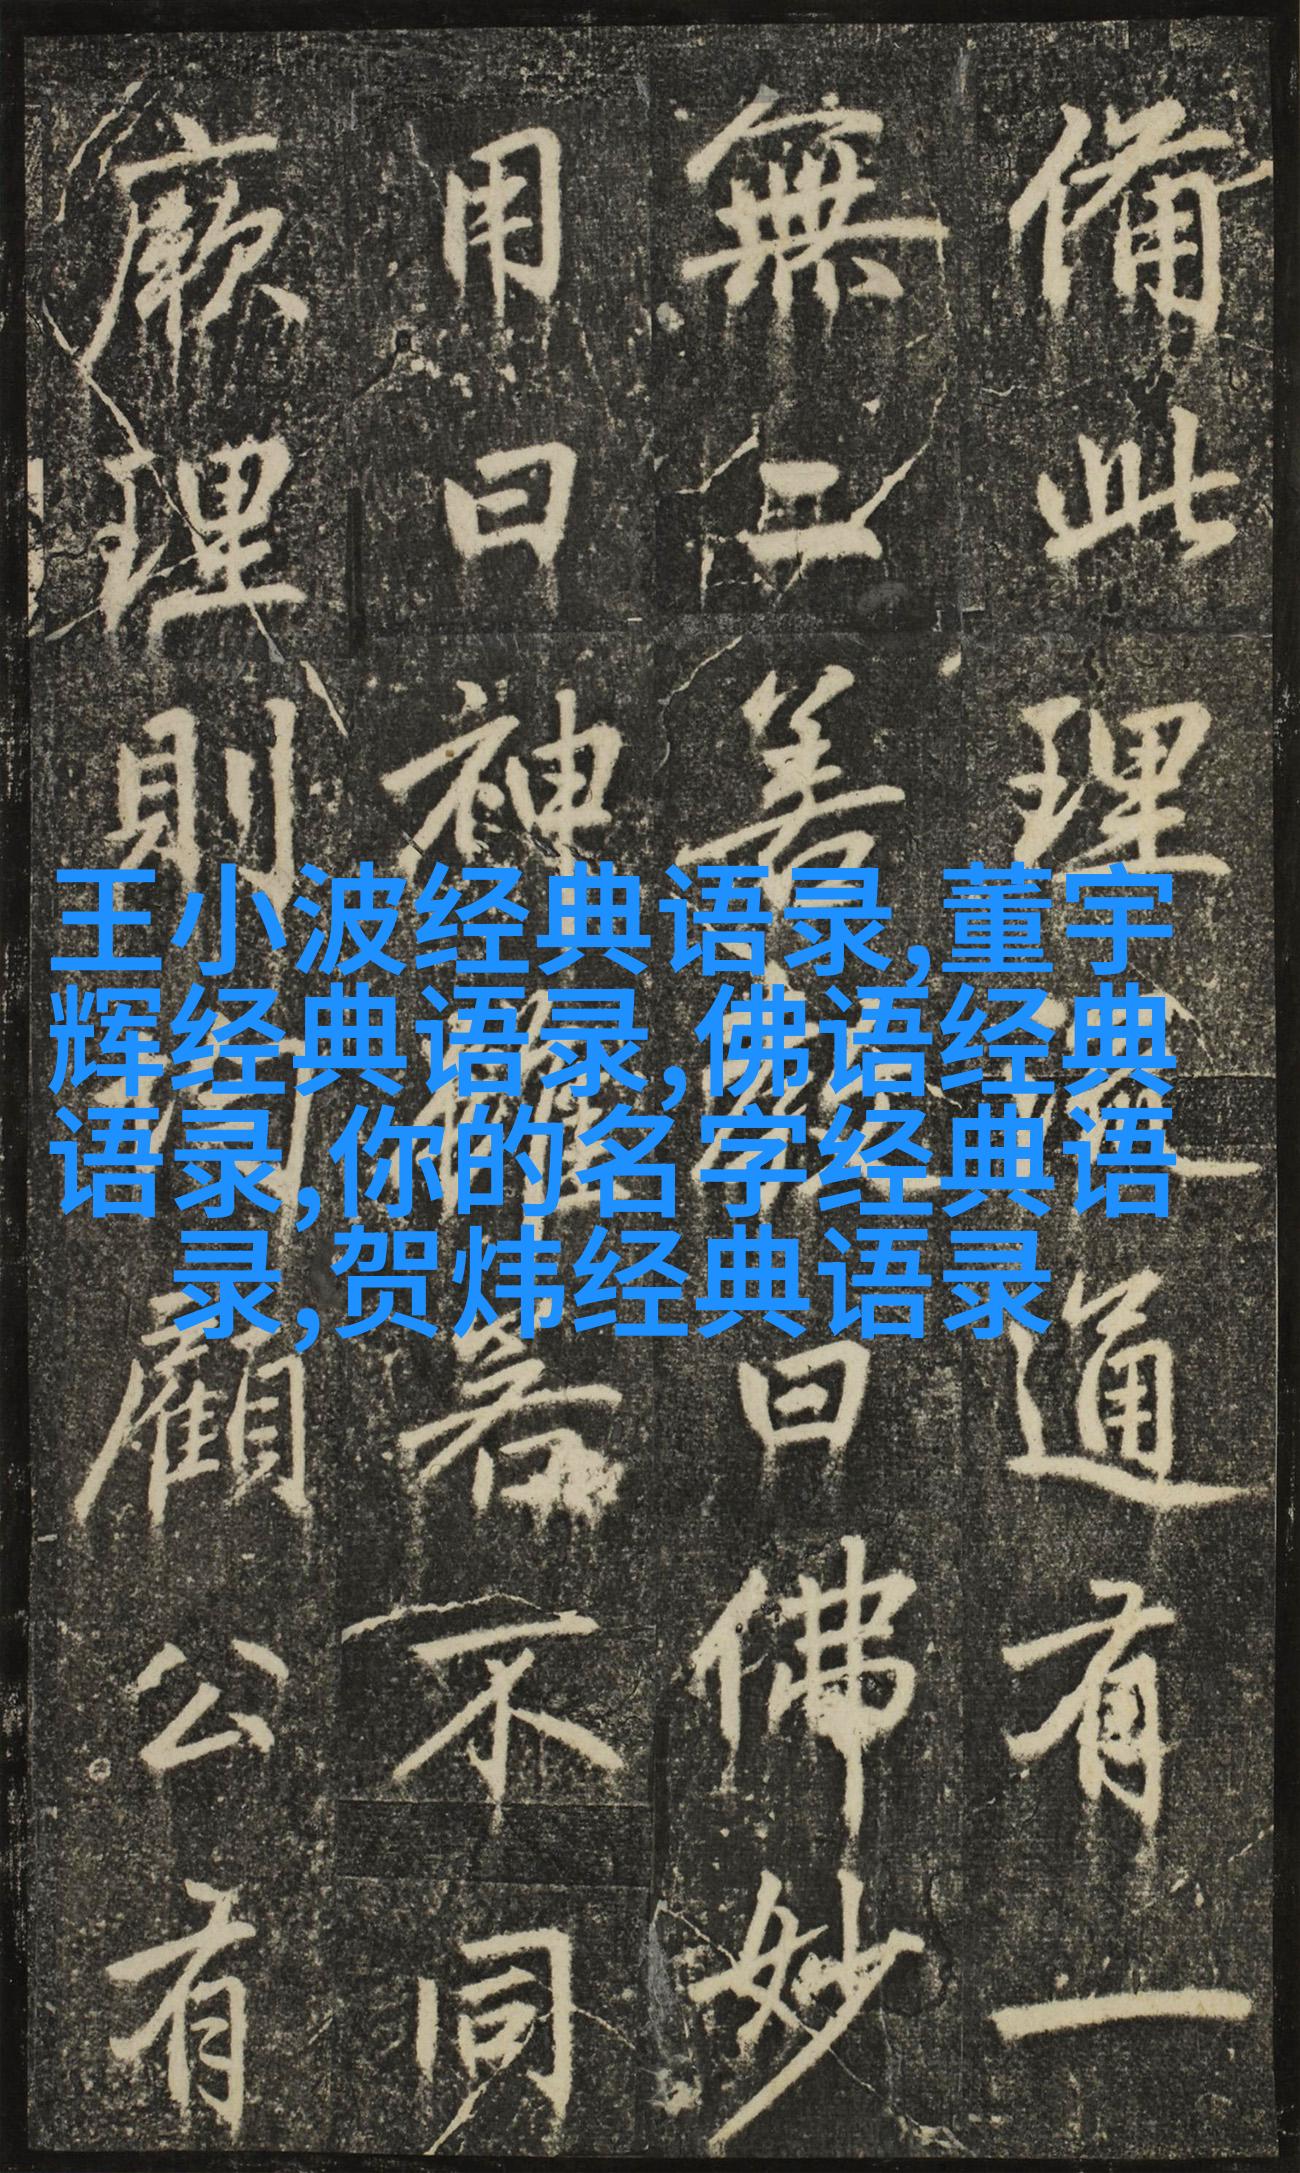 備此理通有一
無工善曰佛妙
用曰神若不同
厥理則顧公有
王小波经典语录,董宇
辉经典语录,佛语经典
语录,你的名字经典语
录,贺炜经典语录